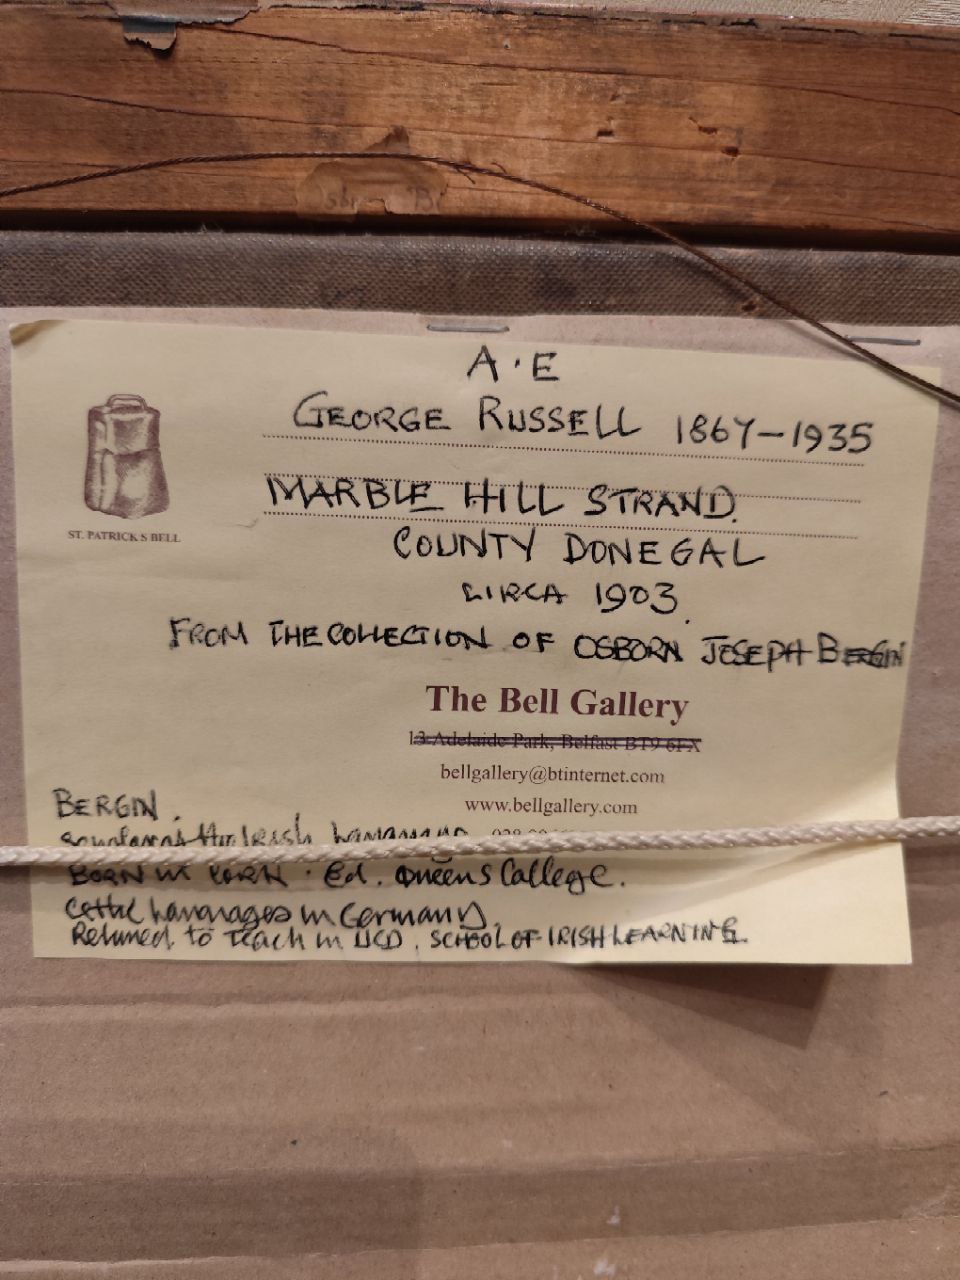 A.E
GEORGE RUSSELL 1867-1935
MARBLE HILL STRAND.
COUNTY DONEGAL
CIRCA 1903
FROM THE COLLECTION OF OSBORN JOSEPH BERGIN
ST. PATRICK S BELL
The Bell Gallery
13 Adelaide Park, Belfast BT9 6FX
bellgallery@btinternet.com
www.bellgallery.com
BERGIN.
Scholar of the Irish Language
BORN IN CORK. Ed. Queens College.
Celtic Languages in Germany.
Returned to Teach in UCD. SCHOOL OF IRISH LEARNING